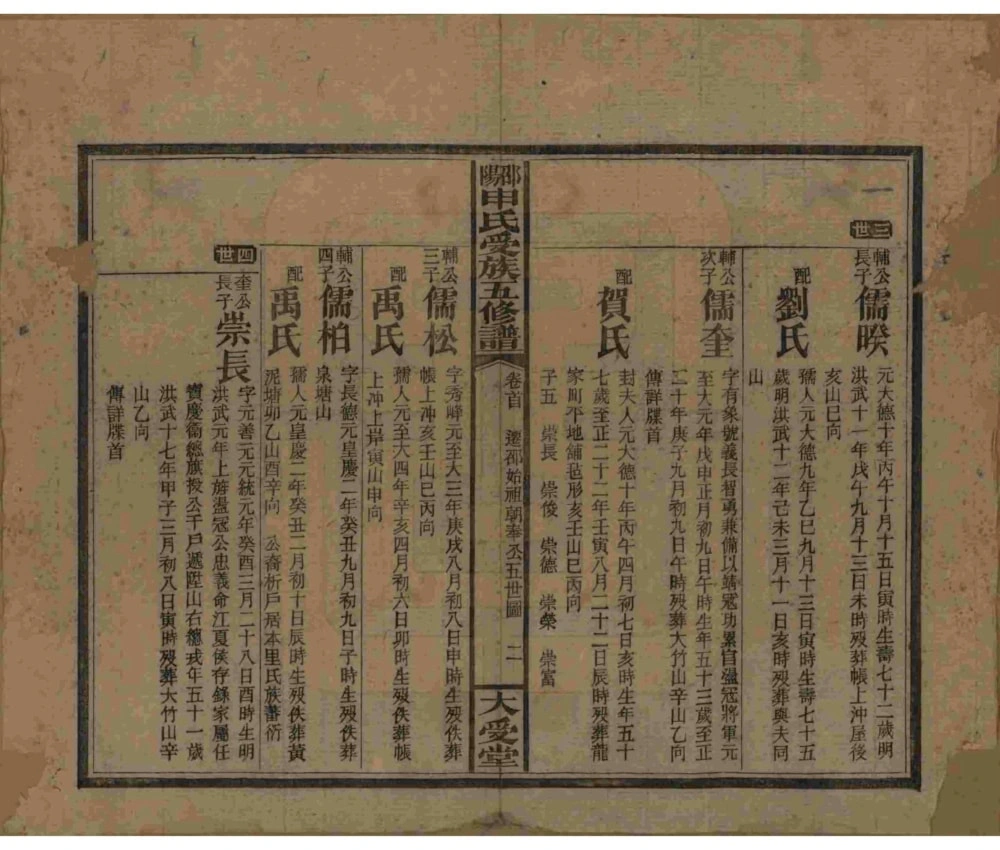 三世
輔公長子
儒暌
元大德十年丙午十月十五日寅時生壽七十二歲明
洪武十一年戊午九月十三日未時歿葬帳上沖屋後
亥山巳向
配
劉氏
孺人元大德九年乙巳九月十三日寅時生壽七十五
歲明洪武十二年己未三月十一日亥時歿葬與夫同
山
輔公次子
儒奎
字有象號義長智勇兼備以靖寇功累自盪寇將軍元
至大元年戊申正月初九日午時生年五十三歲至正
二十年庚子九月初九日午時歿葬大竹山辛山乙向
傳詳牒首
配
賀氏
封夫人元大德十年丙午四月初七日亥時生年五十
七歲至正二十二年壬寅八月二十二日辰時歿葬龍
家町平地舖毡形亥壬山巳丙向
子五 崇長 崇俊 崇德 崇榮 崇富
邵陽申氏受族五修譜
卷首
遷邵始祖朝奉公五世圖
二
大受堂
輔公三子
儒松
字秀峰元至大三年庚戌八月初八日申時生歿佚葬
帳上沖亥壬山巳丙向
配
禹氏
孺人元至大四年辛亥四月初六日卯時生歿佚葬帳
上沖上岸寅山申向
輔公四子
儒柏
字長德元皇慶二年癸丑九月初九日子時生歿佚葬
泉塘山
配
禹氏
孺人元皇慶二年癸丑二月初十日辰時生歿佚葬黃
泥塘卯乙山酉辛向 公裔析戶居本里氏族蕃衍
四世
奎公長子
崇長
字元善元元統元年癸酉三月二十八日酉時生明
洪武元年上旌盪寇公忠義命江夏侯存錄家屬任
寶慶衛總旗授公千戶遞陞山右總戎年五十一歲
洪武十七年甲子三月初八日寅時歿葬大竹山辛
山乙向
傳詳牒首